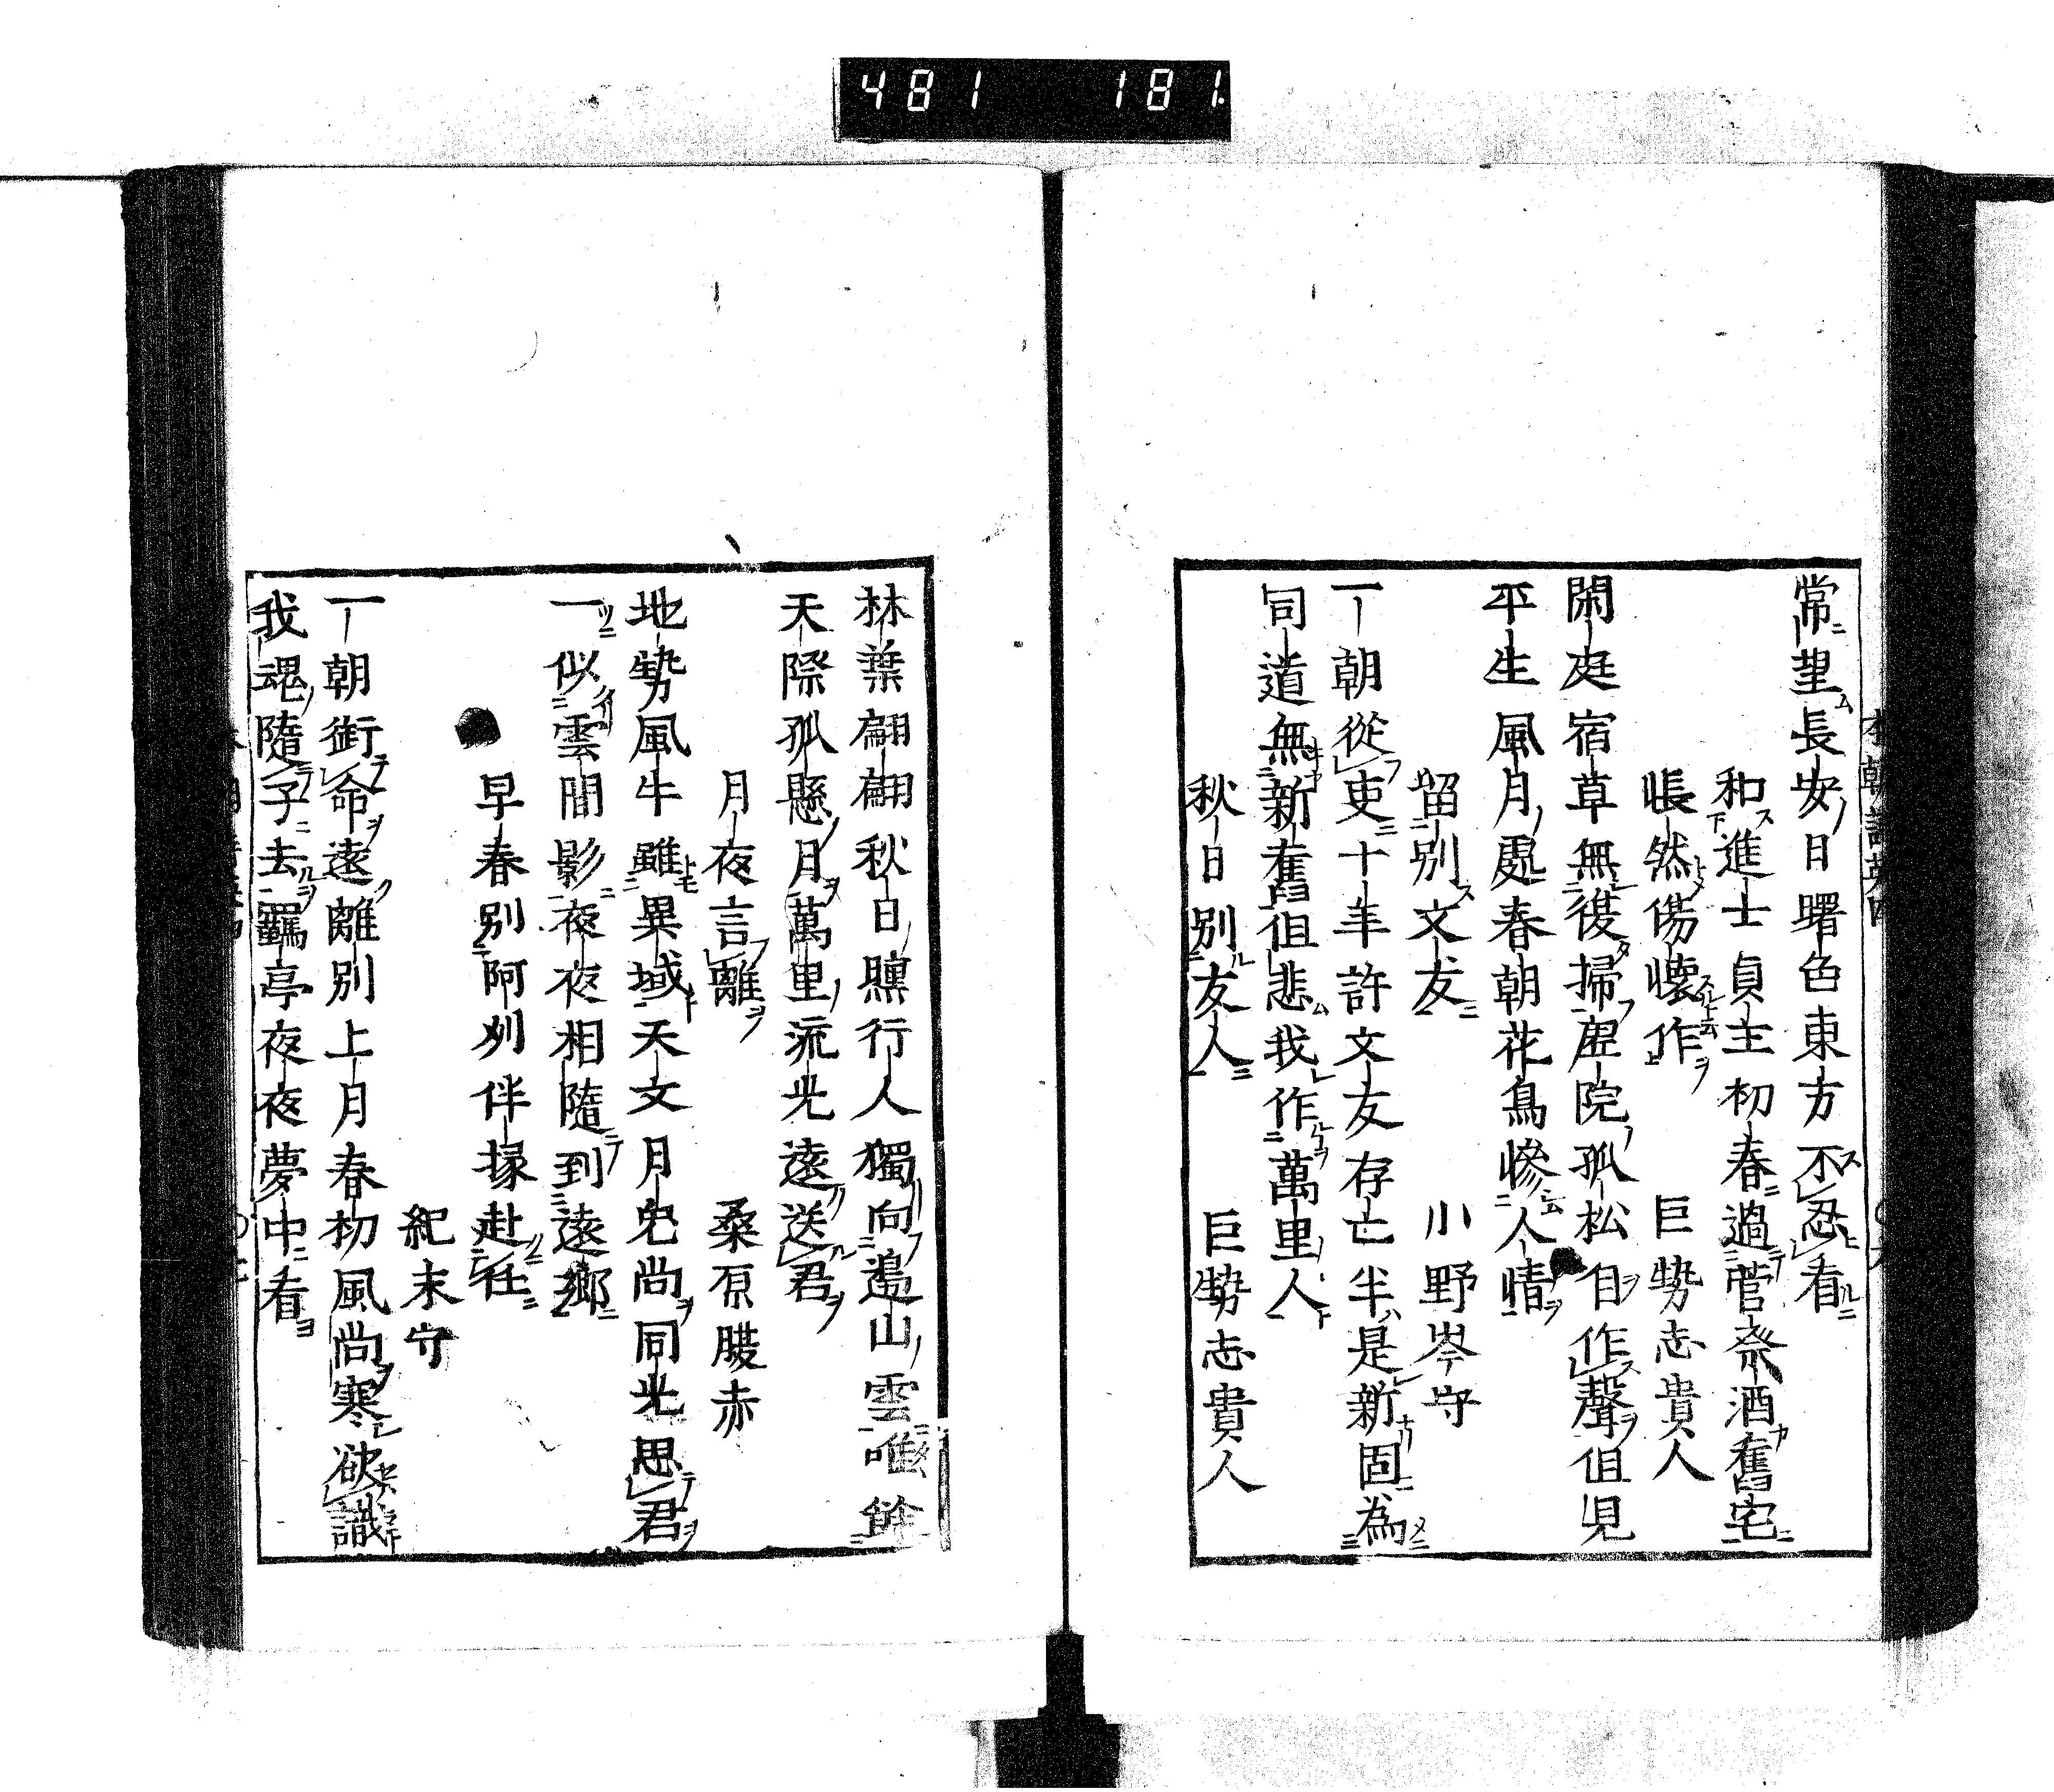 481 181
常望長安日曙色東方不忍看
和進士貞主初春過菅祭酒舊宅
悵然傷懷作 巨勢志貴人
閑庭宿草無復掃虛院孤松自作聲但見
平生風月處春朝花鳥慘人情
留別文友 小野岑守
一朝從吏十年許文友存亡半是新固為
同道無新舊但悲我作萬里人
秋日別友人 巨勢志貴人
林葉翩翩秋日曛行人獨向邊山雲唯餘
天際孤懸月萬里流光遠送君
月夜言離 桑原腹赤
地勢風牛雖異域天文月兔尚同光思君
一似雲間影夜夜相隨到遠鄉
早春別阿州伴掾赴任
紀末守
一朝銜命遠離別上月春初風尚寒欲識
我魂隨子去羈亭夜夜夢中看